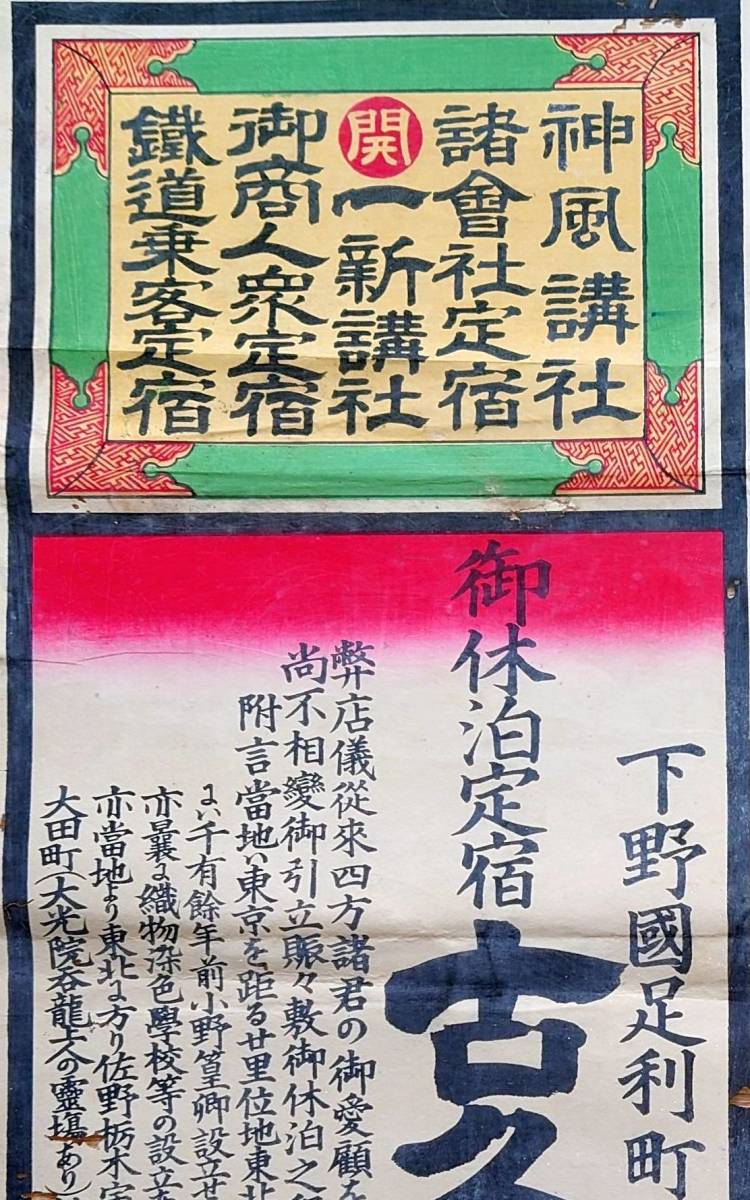 神風講社
諸會社定宿
開
一新講社
御商人衆定宿
鐵道乗客定宿
下野國足利町
御休泊定宿
古久
弊店儀從來四方諸君の御愛顧を
尚不相變御引立賑々敷御休泊之
附言當地ハ東京を距る廿里位地東北
千有餘年前小野篁卿設立せ
亦曩ニ織物染色學校等の設立
亦當地より東北ニ方り佐野栃木
大田町(大光院呑龍上人の靈塲あり)